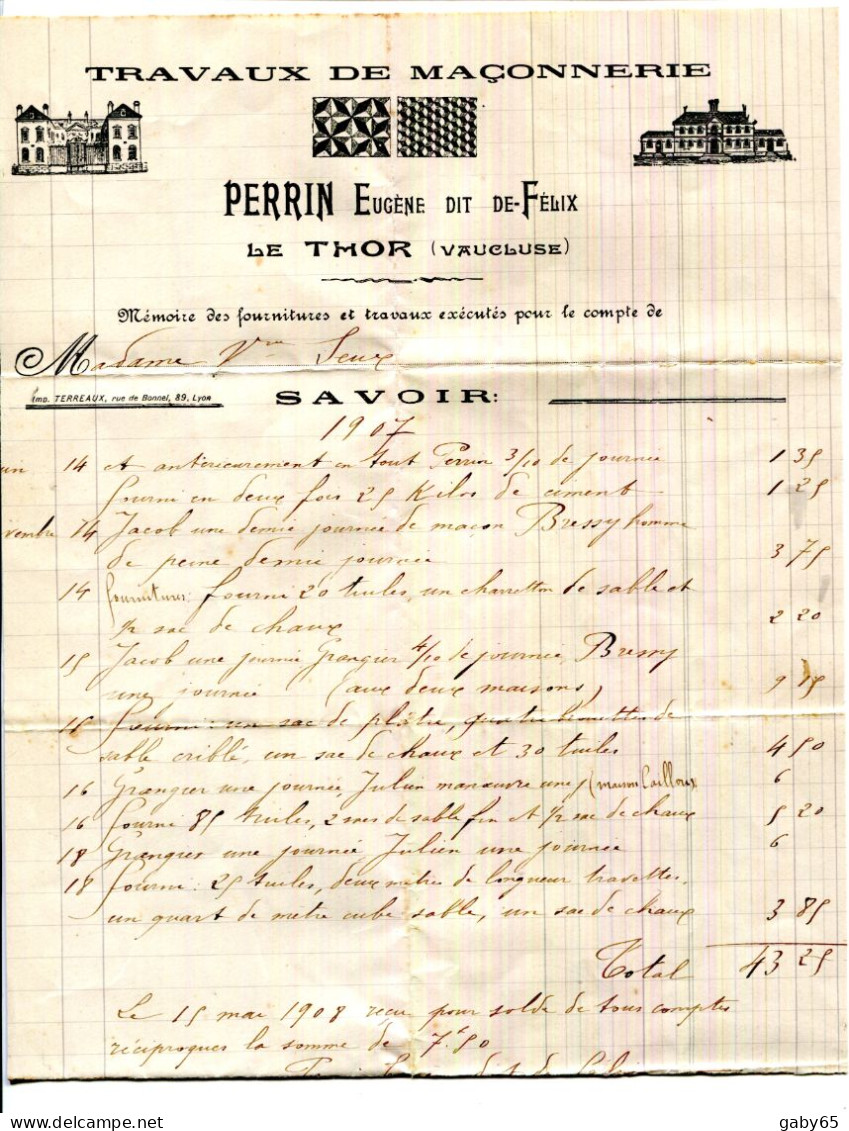 TRAVAUX DE MAÇONNERIE
PERRIN EUGÈNE DIT DE-FÉLIX
LE THOR (VAUCLUSE)
Mémoire des fournitures et travaux exécutés pour le compte de
Madame Vve Seux
Imp. TERREAUX, rue de Bonnel, 89, Lyon
SAVOIR:
1907
uin 14 et antérieurement en tout Perrin 3/10 de journée 1 35
fourni en deux fois 25 Kilos de ciment 1 25
vembre 14 Jacob une demie journée de maçon Bressy homme
de peine demie journée 3 75
14 fournitures: fourni 20 tuiles, un charretton de sable et
1/2 sac de chaux 2 20
15 Jacob une journée Grangier 4/10 de journée, Bressy
une journée (aux deux maisons) 9 15
15 fourni: un sac de plâtre, quatre brouettes de
sable criblé, un sac de chaux et 30 tuiles 4 50
16 Grangier une journée, Julien manœuvre une j (maison Cailloux 6
16 fourni 85 tuiles, 2 sacs de sable fin et 1/2 sac de chaux 5 20
18 Grangier une journée, Julien une journée 6
18 fourni: 25 tuiles, deux mètres de longueur travettes,
un quart de mètre cube sable, un sac de chaux 3 85
Total 43 25
Le 15 mai 1908 reçu pour solde de tous comptes
réciproques la somme de 7f50
dit de Félix
gaby65